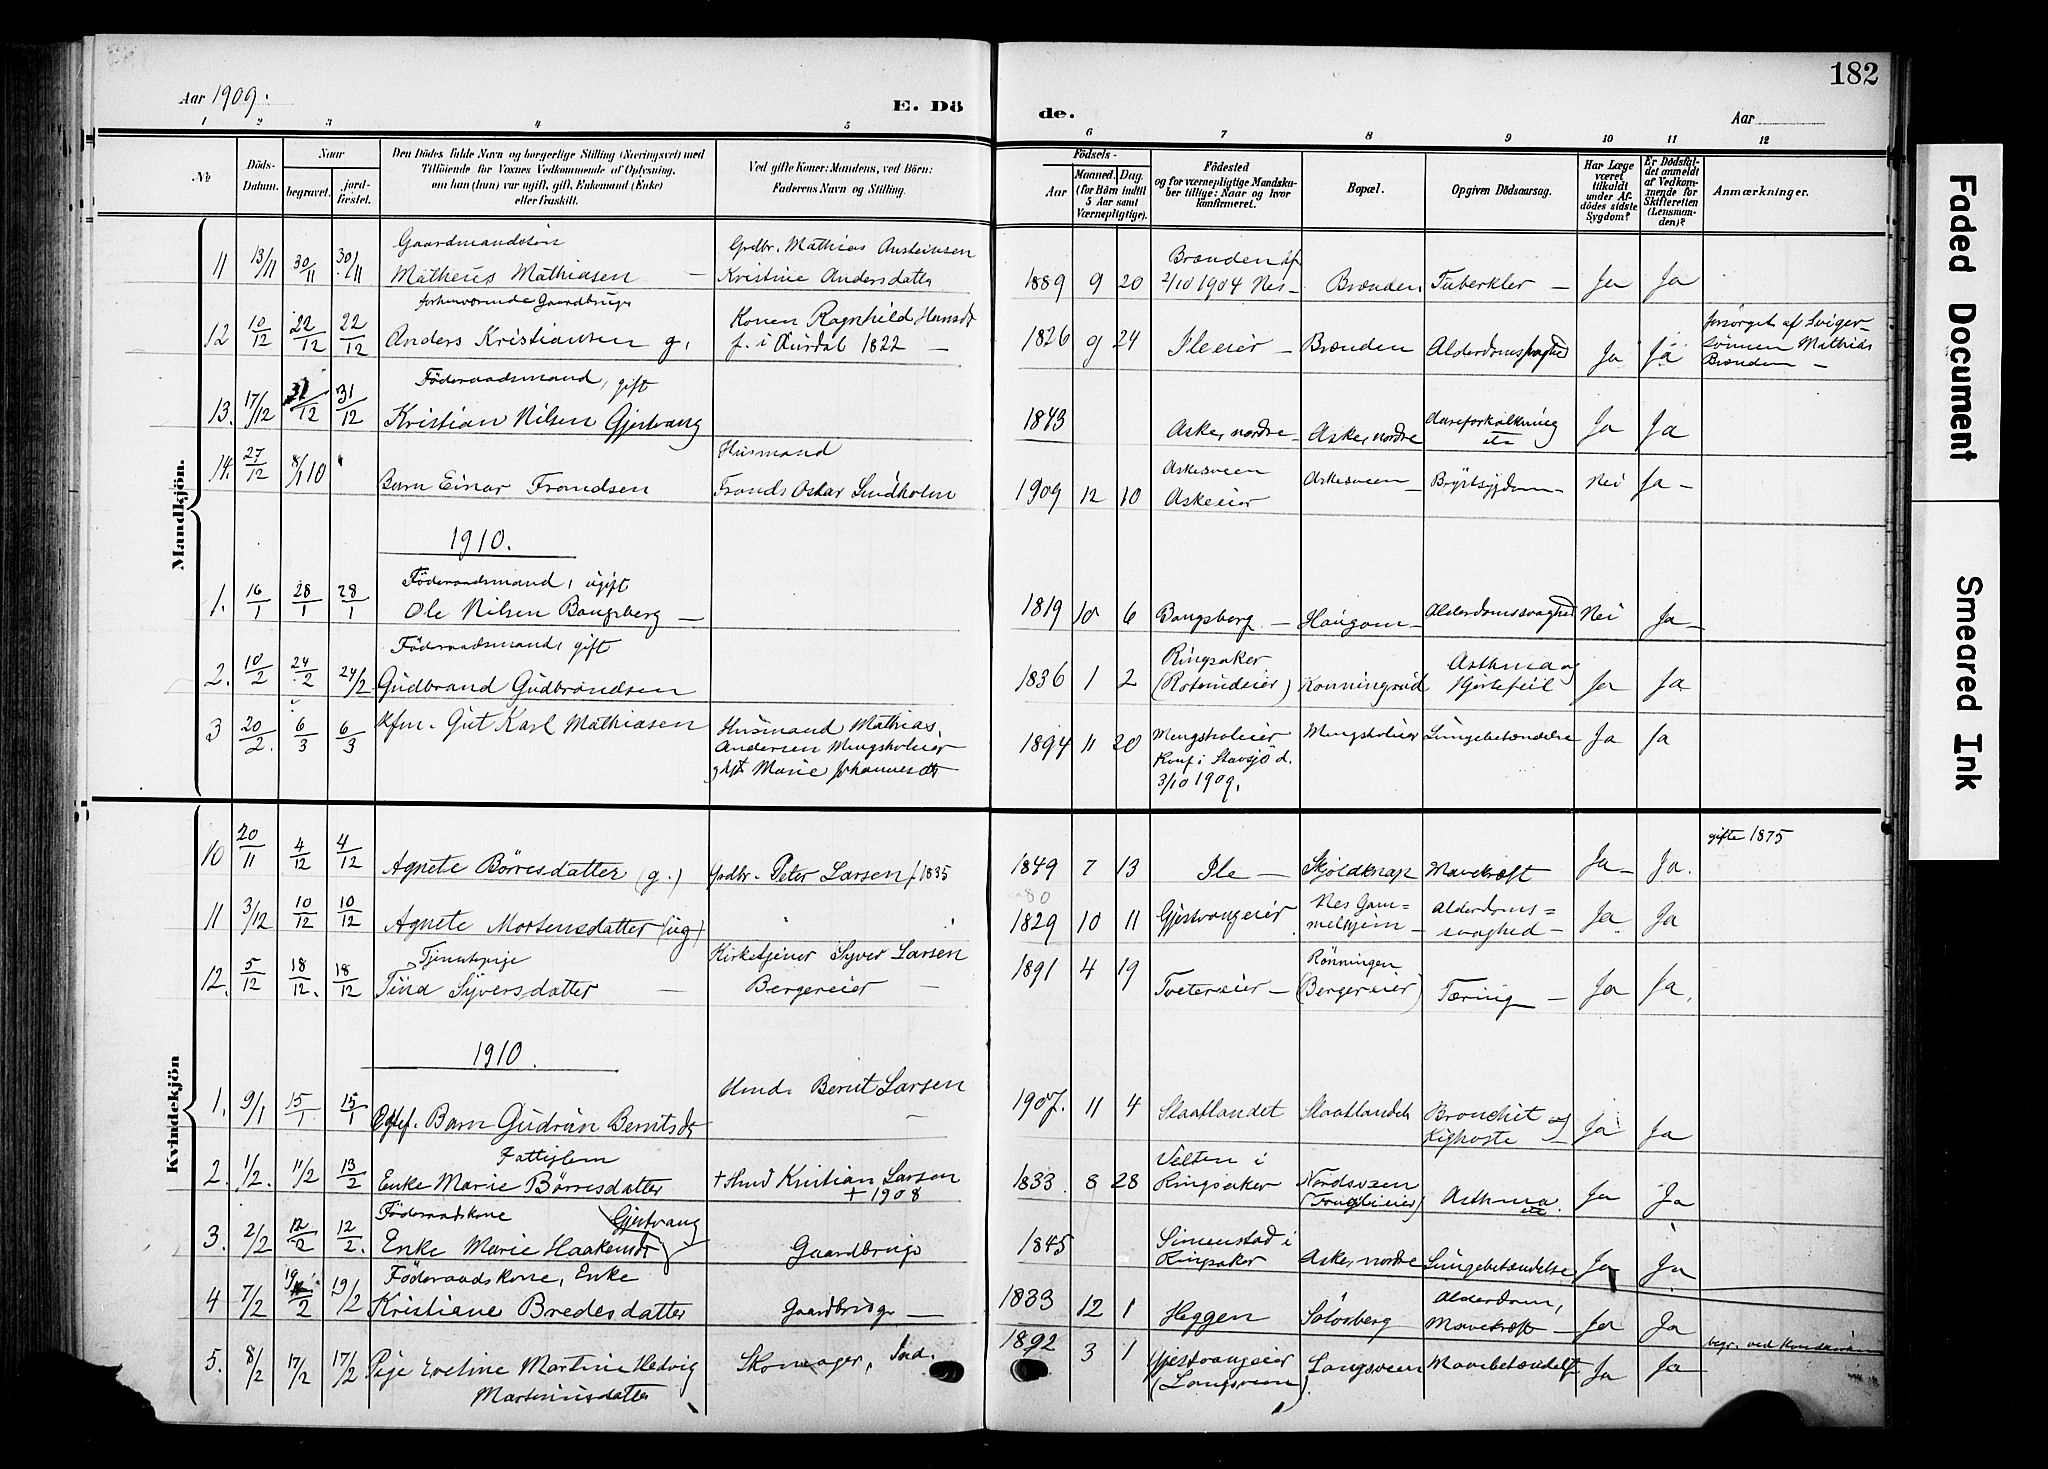 182
Aar 1909.
E. Dö
de.
Aar
1 2 3 4 5 6 7 8 9 10 11 12
No
Döds-Datum.
Naar
begravet.
jord-fæstet.
Den Dödes fulde Navn og borgerlige Stilling (Næringsvei) med
Tilföiende for Voxnes Vedkommende af Oplysning,
om han (hun) var ugift, gift, Enkemand (Enke)
eller fraskilt.
Ved gifte Koner: Mandens, ved Börn:
Faderens Navn og Stilling.
Födsels-
Aar
Maaned. Dag.
(for Börn indtil
5 Aar samt
Værnepligtige).
Födested
og for værnepligtige Mandskaber tillige: Naar og hvor
konfirmeret.
Bopæl.
Opgiven Dödsaarsag.
Har Læge været tilkaldt under Afdödes sidste Sygdom?
Er Dödsfaldet anmeldt af Vedkommende for Skifteretten (Lensmanden)?
Anmærkninger.
Mandkjön.
11 13/11 30/11 30/11 Gaardmandssön
Matheus Mathiasen — Grdbr. Mathias
Kristine Andersdatter 1889 9 20 Brænden
2/10 1904 Nes — Brænden Tuberkler — Ja Ja
12 10/12 22/12 22/12 forhenværende Gaardbruger
Anders Kristiansen g. Konen Ragnhild Hansdt
f. i Aurdal 1822 — 1826 9 24 Ileeier — Brænden Alderdomssvaghed Ja Ja forsörget af Sviger-
sönnen Mathias
Brænden —
13. 17/12 31/12 31/12 Föderaadsmand, gift
Kristian Nilsen Gjestvang 1843 Aske, nordre — Aske, nordre Aareforkalkning
etc Ja Ja
14. 27/12 8/1 10 Barn Einar Frandsen Husmand
Frands Oskar Lindholm 1909 12 10 Askesveen
Askeeier Askesveen — Brystsygdom — Nei Ja —
1910.
1. 16/1 28/1 28/1 Föderaadsmand, ugift
Ole Nilsen Bangsberg — 1819 10 6 Bangsberg — Haugom — Alderdomssvaghed Nei Ja —
2. 10/2 24/2 24/2 Föderaadsmand, gift
Gudbrand Gudbrandsen 1836 1 2 Ringsaker
Asthma og
Hjertefeil Ja Ja
3 20/2 6/3 6/3 Kfm. Gut Karl Mathiasen Husmand Mathias
Andersen
Marie Johannesdt 1894 11 20
Konf. i Stavsjö d.
3/10 1909. Lungebetændelse Ja Ja
Kvindekjön
10 20/11 4/12 4/12 Agnete Börresdatter (g.) Grdbr. Peter Larsen f 1835 1849 7 13 Ile — Skjöldknap Mavekræft Ja — Ja. gifte 1875
11 3/12 10/12 10/12 Agnete Mortensdatter (ug) 1829 10 11 Gjestvangeier Nes Gam=
melhjem — Alderdoms=
svaghed — Ja Ja
12. 5/12 18/12. 18/12 Tjenestepige
Tina Syversdatter — Kirketjener Syver Larsen
Bergereier — 1891 4 19 Tvetereier — Rönningen
(Bergereier) Tæring — Ja Ja.
1910.
1. 9/1 15/1 15/1 Egtef. Barn Gudrun Berntsdt Hmd. Bernt Larsen
— 1907. 11 4 Slaatlandet Slaatlandet Bronchit og
Kighoste — Ja Ja
2. 1/2. 11/2 13/2 Fattiglem
Enke Marie Börresdatter + Hmd Kristian Larsen
+ 1908 1833 8 28 Velten i
Ringsaker Asthma
etc Ja Ja
3. 2/2 12/2 12/2. Föderaadskone
Enke Marie Haakensdt (Gjestvang) Gaardbruger 1845 Simenstad i
Ringsaker Aske, nordre Lungebetændelse Ja Ja
4 7/2 19/2 19/2 Föderaadskone, Enke
Kristiane Bredesdatter Gaardbruger — 1833 12 1 Heggen Sölvsberg Alderdom,
Mavekræft — Ja Ja
5. 8/2 17/2 17/2 Pige Eveline Martine Hedvig
Martiniusdatter Skomager, Ind. 1892 3 1 Gjestvangeier
(Langsveen) Langsveen Mavebetændelse Ja Ja
Faded Document
Smeared Ink